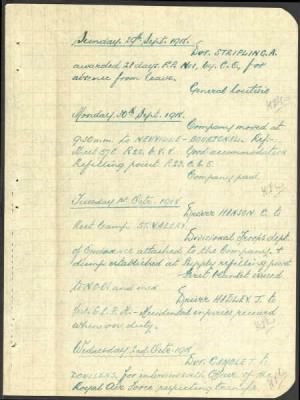 Sunday 29th Sept. 1918.
Dvr. STRIPLING. A.
awarded 28 days F.P. No1, by C.O, for
absence from leave.
General routine
Monday 30th Sept. 1918.
Company moved at
9.30am. to NEUVILLE-BOURJONVAL. Ref-
Sheet 57C P.22. Good accommodation
Refilling point P.23.
Company paid
Tuesday 1st Octr. 1918
Driver HANSON C. to
Rest Camp ST. VALERY.
Divisional Troops dept.
of Ordnance attached to the Company, &
dump established at Supply refilling point
issued
to N.C.O's and men
Driver HADLEY J. to
accidental injuries received
when on duty.
Wednesday 2nd Octr. 1918
Dvr. A.
for interview with Officer of the
Royal Air Force respecting transfer